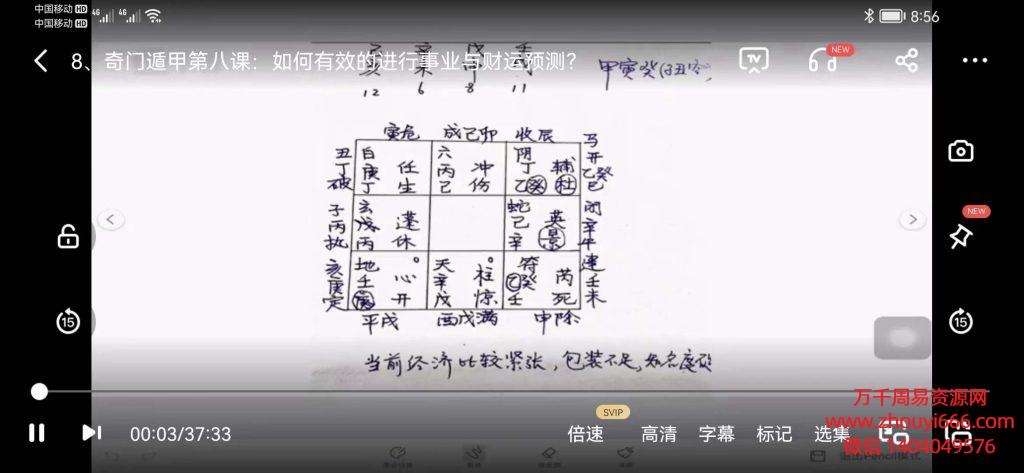 中国移动HD 4G 4G
中国移动HD
8:56
8、奇门遁甲第八课：如何有效的进行事业与财运预测？
NEW
12 6 8 11
甲寅癸(子丑空)
寅危 成己卯 收辰 马
丑丁破 白庚丁 任生 六丙己 冲伤 阴丁乙癸 辅杜 开乙癸巳
子丙执 玄戊丙 蓬休 蛇己辛 英景 闭辛午
亥庚定 地壬庚 心开 天辛戊 柱惊 符乙癸壬 芮死 建壬未
平戌 酉戊满 申除
NEW
15
15
当前经济比较紧张，包装不足，知名度
00:03/37:33
SVIP
倍速 高清 字幕 标记 选集
万千周易资源网
www.zhouyi666.com
微信 1404049576